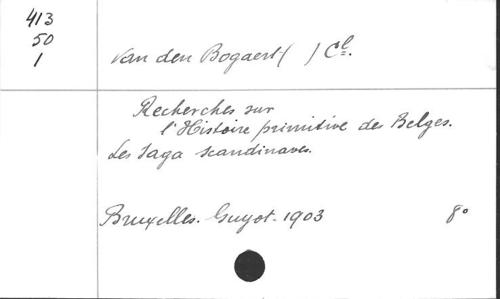 413
50
1
Van den Bogaert ( ) Cl.
Recherches sur
l'Histoire primitive des Belges.
Les Saga scandinaves.
Bruxelles. Guyot. 1903 8°